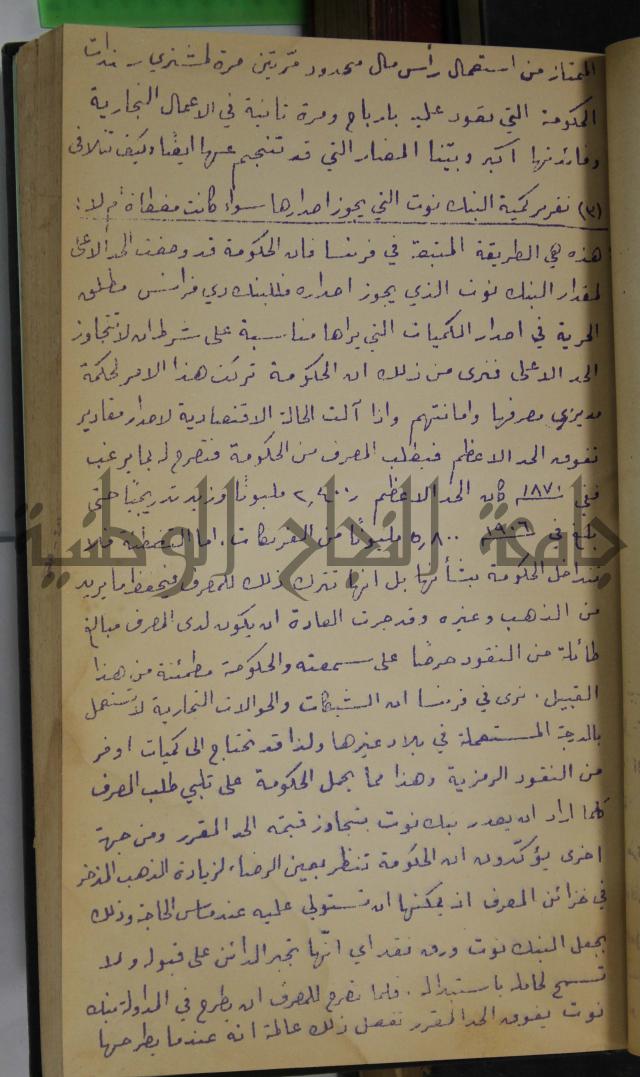 الممتاز من استعمال رأس مال محدود مرّتين مرة لمشتري سندات
الحكومة التي تعود عليه بارباح ومرة ثانية في الاعمال التجارية
وفائدتها اكبر وبيّنا المضار التي قد تنجم عنها ايضًا وكيف تتلافى
(٣) تقرير كمية البنك نوت التي يجوز اصدارها سواء كانت مغطاة ام لا :
هذه هي الطريقة المتبعة في فرنسا فان الحكومة قد وضعت الحد الاعلى
لمقدار البنك نوت الذي يجوز اصداره فللبنك دي فرانس مطلق
الحرية في اصدار الكميات التي يراها مناسبة على شرط ان لا تتجاوز
الحد الاعلى فنرى من ذلك ان الحكومة تركت هذا الامر لحكمة
مديري مصرفها وامانتهم واذا آلت الحالة الاقتصادية لاصدار مقادير
تفوق الحد الاعظم فيطلب المصرف من الحكومة فتصرح له بما يرغب
ففي ١٨٧٠ كان الحد الاعظم مليونًا وزيد تدريجيًا حتى
بلغ في ١٩٠٦ ٥٫٨٠٠ مليونًا من الفرنكات . اما التغطية فلا
تتداخل الحكومة بشأنها بل انها تترك ذلك للمصرف فيحفظ ما يريد
من الذهب وغيره وقد جرت العادة ان يكون لدى المصرف مبالغ
طائلة من النقود حرصًا على سمعته والحكومة مطمئنة من هذا
القبيل . نرى في فرنسا ان الشيكات والحوالات التجارية لا تستعمل
بالدرجة المستعملة في بلاد غيرها ولذا قد نحتاج الى كميات اوفر
من النقود الرمزية وهذا مما يحمل الحكومة على تلبي طلب المصرف
كلما اراد ان يصدر بنك نوت يتجاوز قيمته الحد المقرر ومن جهة
اخرى يؤكدون ان الحكومة تنظر بعين الرضاء لزيادة الذهب المدخر
في خزائن المصرف اذ يمكنها ان تستولي عليه عند مسّ الحاجة وذلك
بجعل البنك نوت ورق نقد اي انّها تجبر الدائن على قبوله ولا
تسمح لحامله باستبداله . فلما تصرح للمصرف ان يطرح في المداولة بنك
نوت يفوق الحد المقرر تفعل ذلك عالمة انه عندما يطرحها
جامعة النجاح الوطنية